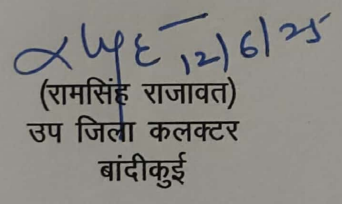 12/6/25
(रामसिंह राजावत)
उप जिला कलक्टर
बांदीकुई